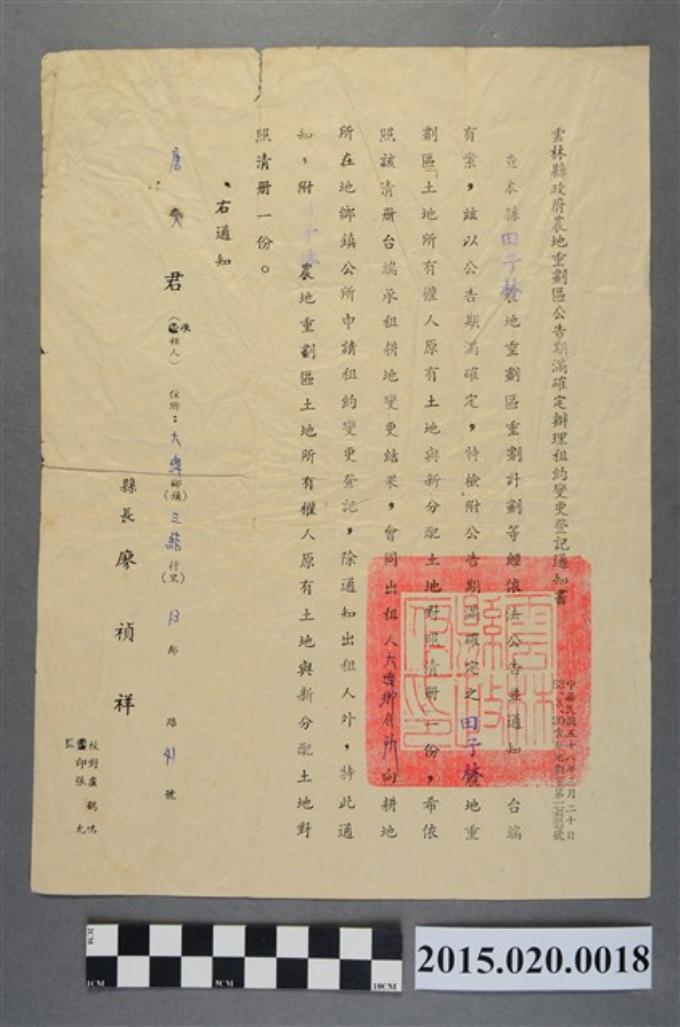 雲林縣政府農地重劃區公告期滿確定辦理租約變更登記通知書
中華民國五十八年三月二十日
查本縣田子林農地重劃區重劃計劃等經依法公告並通知 台端
有案,茲以公告期滿確定,特檢附公告期滿確定之田子林農地重
劃區「土地所有權人原有土地與新分配土地對照清冊一份,希依
照該清冊台端承租耕地變更結果,會同出租人大埤鄉公所向耕地
所在地鄉鎮公所申請租約變更登記,除通知出租人外,特此通
知、附田子林農地重劃區土地所有權人原有土地與新分配土地對
照清冊一份。
右通知
唐 君(承租人) 住所:大埤鄉(鎮)三結村(里)13鄰 路41號
縣長 廖禎祥
校對盧鶴鳴
監印張 允
雲林縣政府印
2CM
1CM
5CM
10CM
2015.020.0018